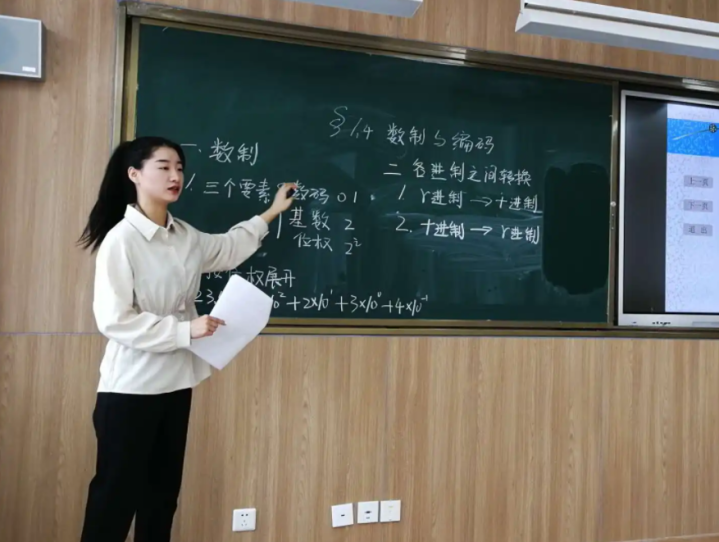 §1.4 数制与编码
一、数制
1. 三个要素 数码 0 1
基数 2
位权 2
按位权展开
+2×10¹+3×10⁰+4×10⁻¹
二 各进制之间转换
1. r进制 → 十进制
2. 十进制 → r进制
上一页
下一页
返回